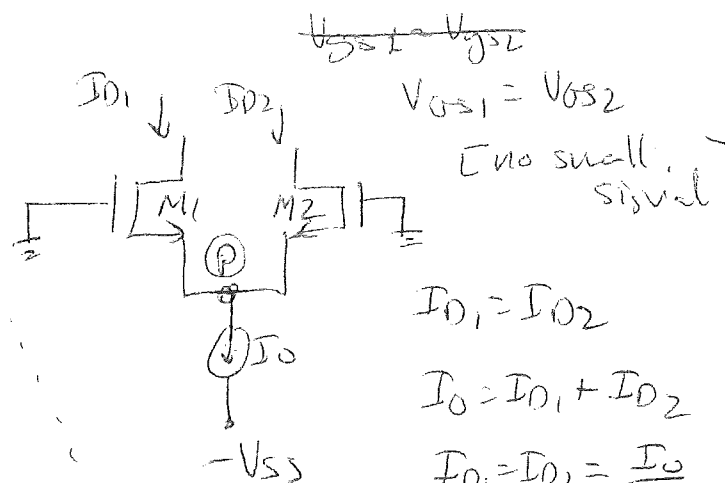 Vgs1 = Vgs2
ID1 ID2
VGS1 = VGS2
[no small
signal
M1 M2
P
ID1 = ID2
I0
I0 = ID1 + ID2
-VSS
ID1 = ID2 = I0